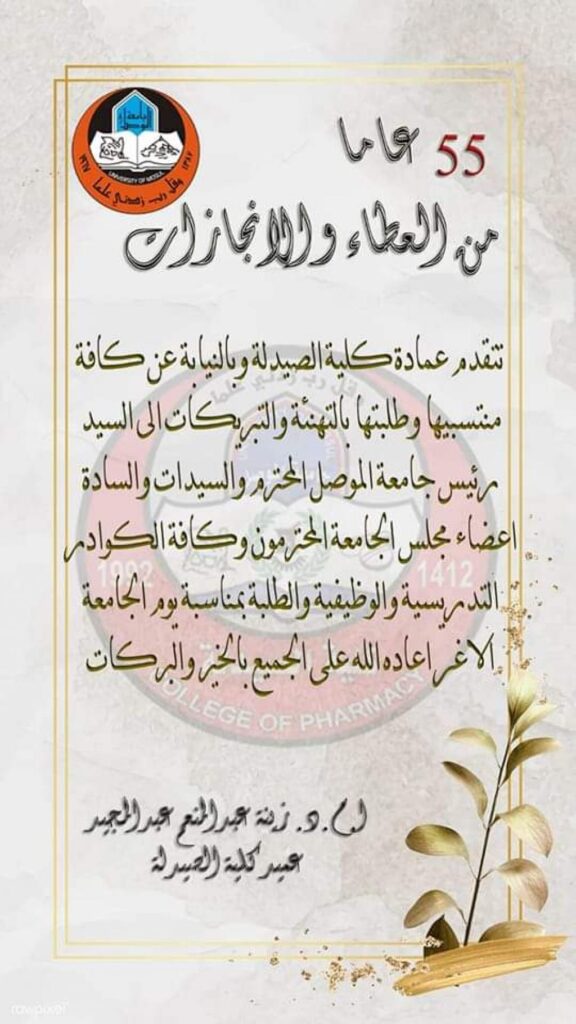 جامعة
الموصل
UNIVERSITY OF MOSUL
١٩٦٧
١٣٨٧
وقل رب زدني علما
55 عاما
من العطاء والانجازات
تتقدم عمادة كلية الصيدلة وبالنيابة عن كافة
منتسبيها وطلبتها بالتهنئة والتبريكات الى السيد
رئيس جامعة الموصل المحترم والسيدات والسادة
اعضاء مجلس الجامعة المحترمون وكافة الكوادر
التدريسية والوظيفية والطلبة بمناسبة يوم الجامعة
الاغر اعاده الله على الجميع بالخير والبركات
1992
1412
COLLEGE OF PHARMACY
ا.م.د. زينة عبدالمنعم عبدالمجيد
عميد كلية الصيدلة
rawpixel